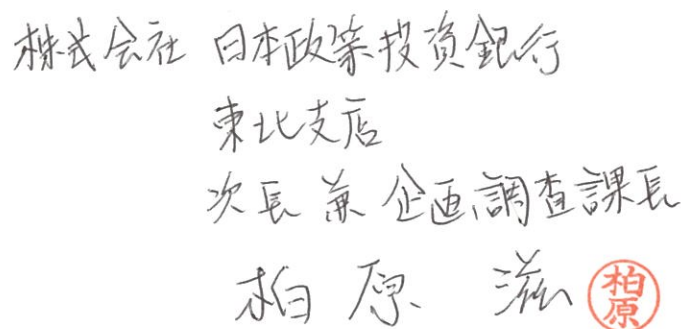 株式会社 日本政策投資銀行
東北支店
次長 兼 企画調査課長
柏原 滋
柏原